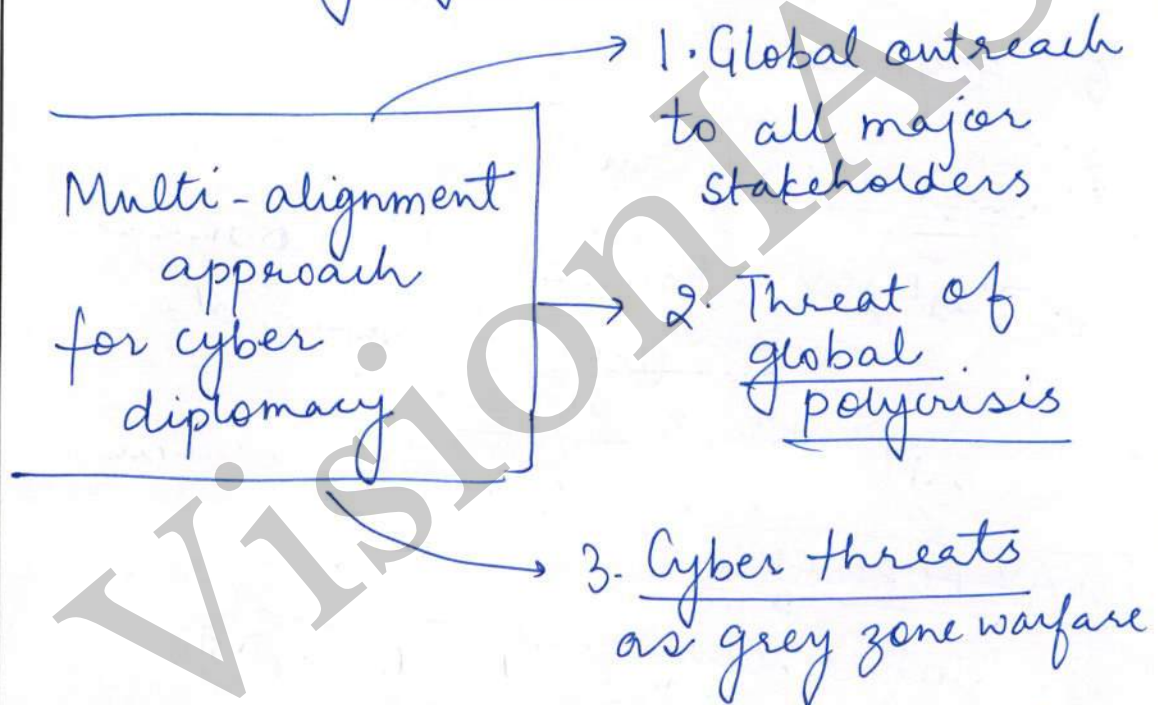 Multi-alignment
approach
for cyber
diplomacy
1. Global outreach
to all major
stakeholders
2. Threat of
global
polycrisis
3. Cyber threats
as grey zone warfare
VisionIAS